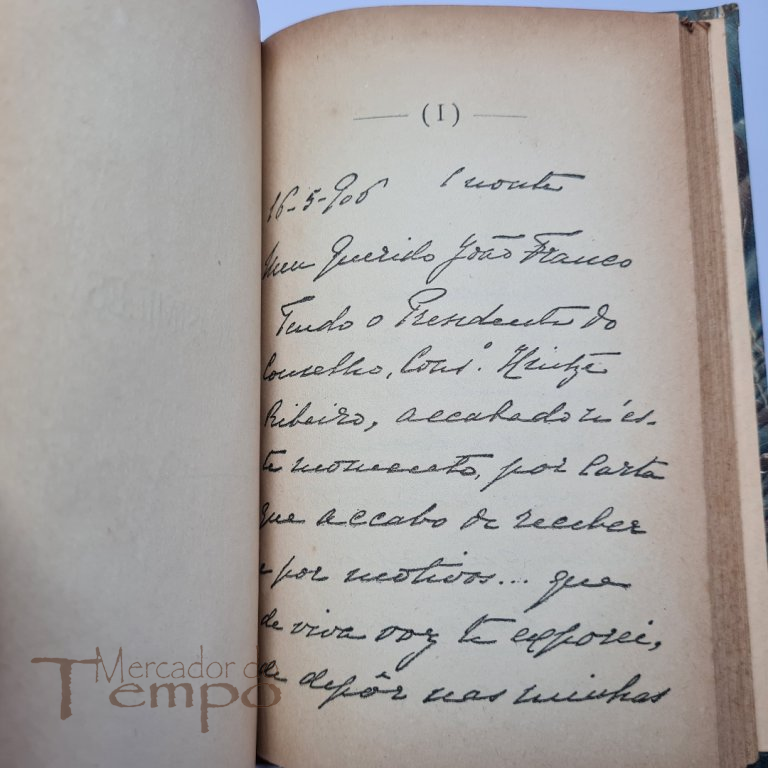 (I)
16-5-906 1 noute
Meu Querido João Franco
Tendo o Presidente do
Conselho, Cons.º Hintze
Ribeiro, accabado n'es-
te momento, por carta
que accabo de receber
e por motivos... que
de viva voz te exporei,
de depôr nas minhas
Mercador do
Tempo